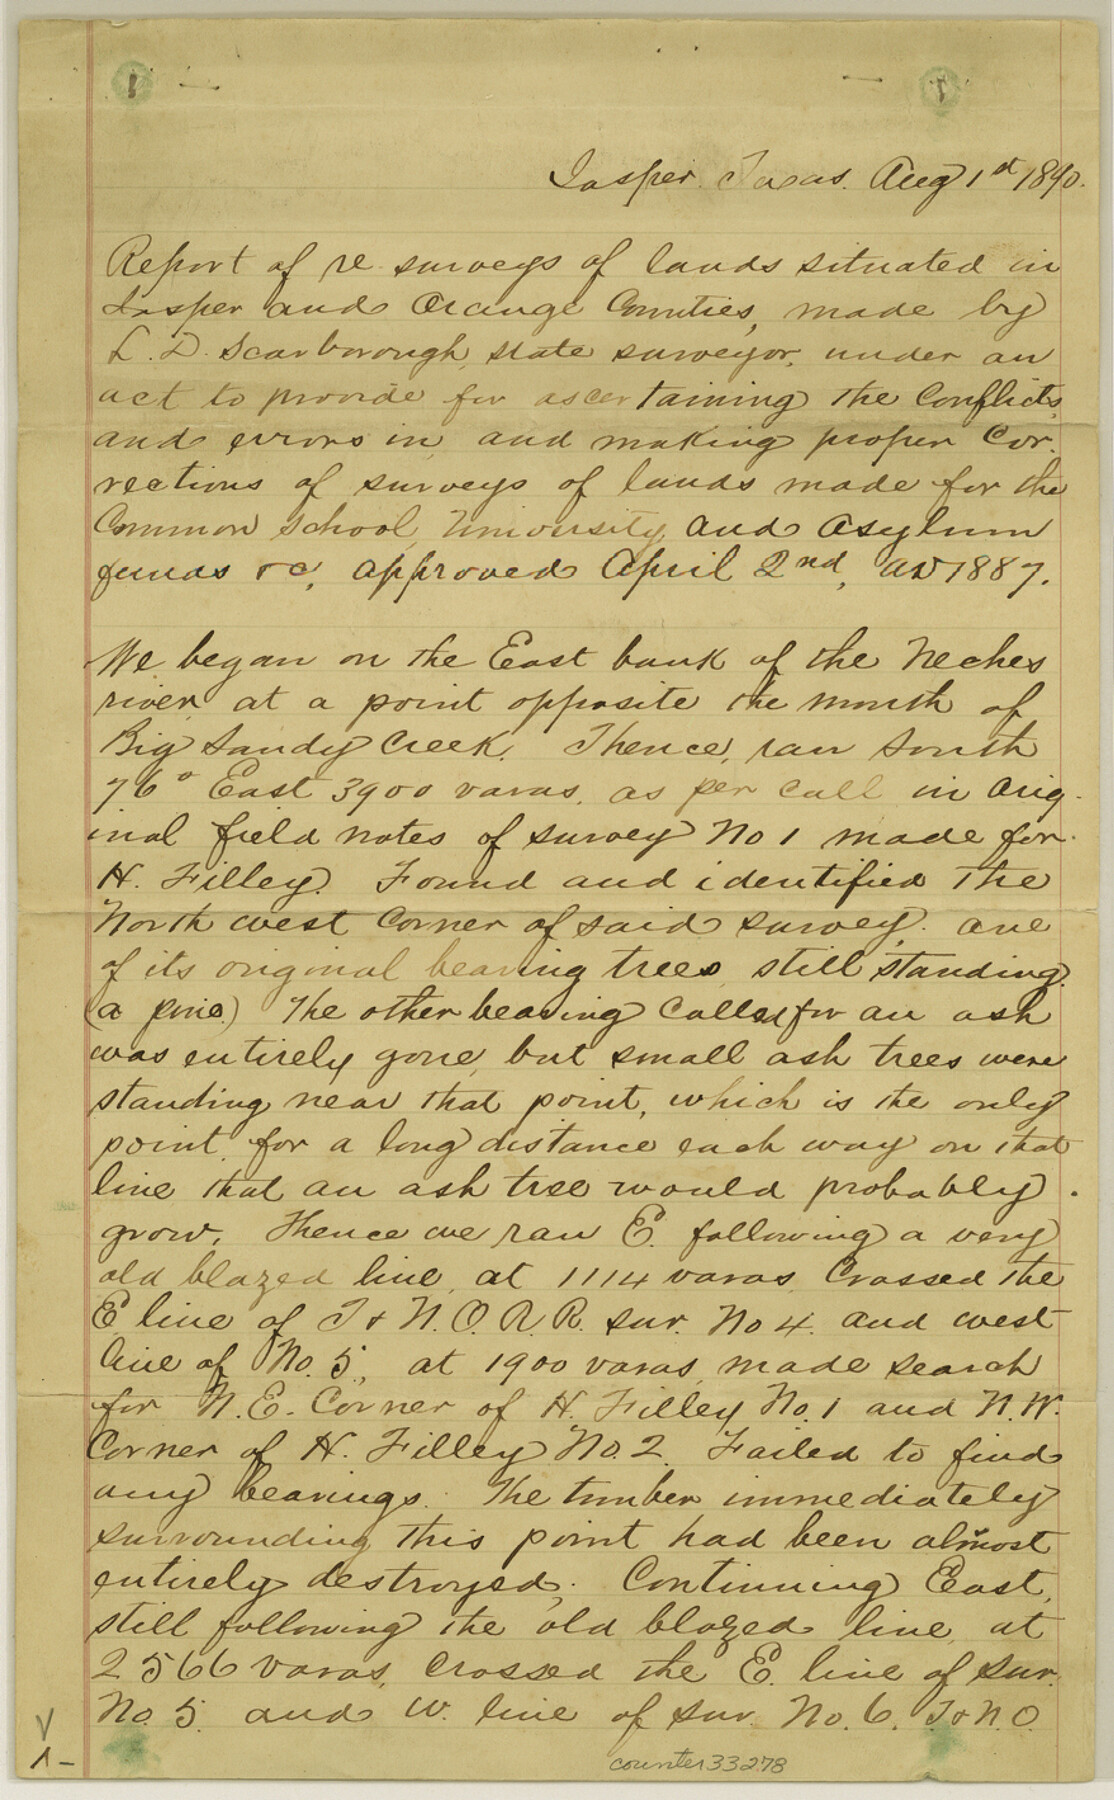 1 1
Jasper. Texas. Aug 1st 1890.
Report of re surveys of lands situated in
Jasper and Orange Counties, made by
L. D. Scarborough, state surveyor, under an
act to provide for ascertaining the Conflicts,
and errors in, and making proper Cor-
rections of surveys of lands made for the
Common School, University, and Asylum
funds &c, approved April 2nd, AD 1887.
We began on the East bank of the Neches
river, at a point opposite the mouth of
Big Sandy Creek. Thence, ran South
76° East 3900 varas, as per call in orig-
inal field notes of survey No 1 made for
H. Filley. Found and identified the
North west Corner of said survey. one
of its original bearing trees still standing.
(a pine.) The other bearing Called for an ash
was entirely gone, but small ash trees were
standing near that point, which is the only
point, for a long distance each way on that
line that an ash tree would probably
grow. Thence we ran E. following a very
old blazed line, at 1114 varas Crossed the
E line of T & N.O.R.R. sur. No 4. and west
line of No. 5, at 1900 varas, made search
for N.E. Corner of H. Filley No. 1 and N.W.
Corner of H. Filley No. 2. Failed to find
any bearings. The timber immediately
surrounding this point had been almost
entirely destroyed. Continuing East,
still following the old blazed line, at
2566 varas, crossed the E. line of sur.
No. 5. and W. line of sur. No. 6. T & N.O.
counter 33278